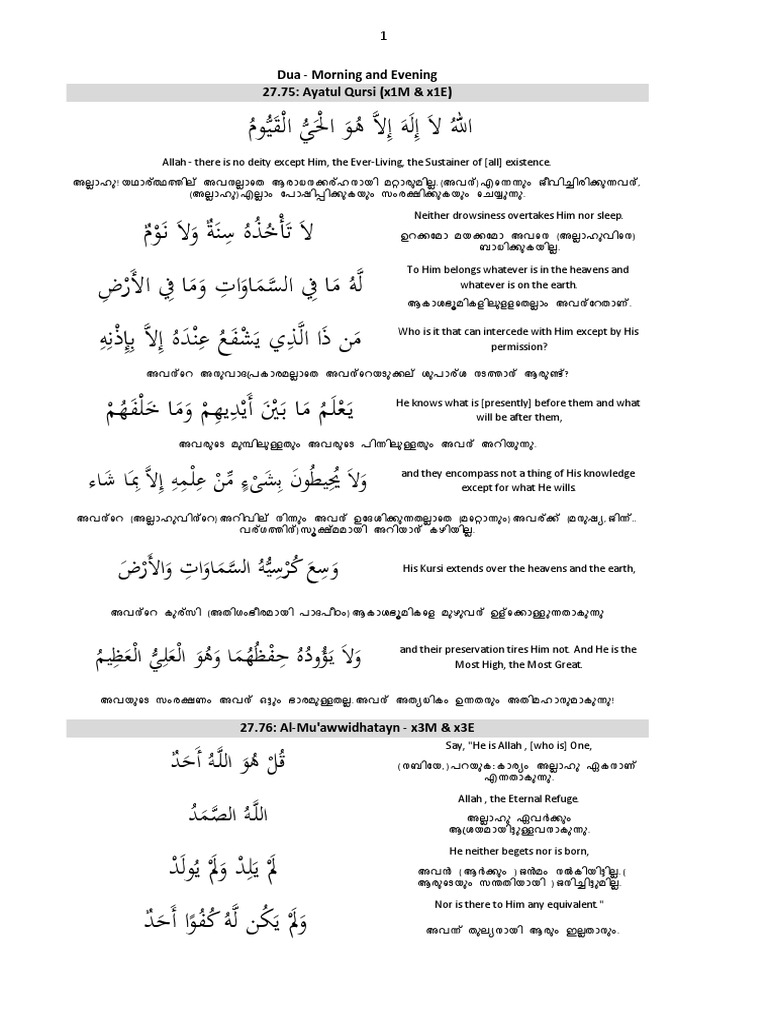 1
Dua - Morning and Evening
27.75: Ayatul Qursi (x1M & x1E)
اللهُ لاَ إِلَهَ إِلاَّ هُوَ الْحَيُّ الْقَيُّومُ
Allah - there is no deity except Him, the Ever-Living, the Sustainer of [all] existence.
അല്ലാഹു! യഥാര്ത്ഥത്തില് അവനല്ലാതെ ആരാധനക്കര്ഹനായി മറ്റാരുമില്ല. (അവന്) എന്നെന്നും ജീവിച്ചിരിക്കുന്നവന്,
(അല്ലാഹു) എല്ലാം പോഷിപ്പിക്കുകയും സംരക്ഷിക്കുകയും ചെയ്യുന്നു.
لاَ تَأْخُذُهُ سِنَةٌ وَلاَ نَوْمٌ
Neither drowsiness overtakes Him nor sleep.
ഉറക്കമോ മയക്കമോ അവനെ (അല്ലാഹുവിനെ)
ബാധിക്കുകയില്ല.
لَّهُ مَا فِي السَّمَاوَاتِ وَمَا فِي الأَرْضِ
To Him belongs whatever is in the heavens and
whatever is on the earth.
ആകാശഭൂമികളിലുള്ളതെല്ലാം അവന്റേതാണ്.
مَن ذَا الَّذِي يَشْفَعُ عِنْدَهُ إِلاَّ بِإِذْنِهِ
Who is it that can intercede with Him except by His
permission?
അവന്റെ അനുവാദപ്രകാരമല്ലാതെ അവന്റെയടുക്കല് ശുപാര്ശ നടത്താന് ആരുണ്ട്?
يَعْلَمُ مَا بَيْنَ أَيْدِيهِمْ وَمَا خَلْفَهُمْ
He knows what is [presently] before them and what
will be after them,
അവരുടെ മുമ്പിലുള്ളതും അവരുടെ പിന്നിലുള്ളതും അവന് അറിയുന്നു.
وَلاَ يُحِيطُونَ بِشَيْءٍ مِّنْ عِلْمِهِ إِلاَّ بِمَا شَاء
and they encompass not a thing of His knowledge
except for what He wills.
അവന്റെ (അല്ലാഹുവിന്റെ) അറിവില് നിന്നും അവന് ഉദേശിക്കുന്നതല്ലാതെ (മറ്റൊന്നും) അവര്ക്ക് (മനുഷ്യ, ജിന്ന്..
വര്ഗത്തിന്) സൂക്ഷ്മമായി അറിയാന് കഴിയില്ല.
وَسِعَ كُرْسِيُّهُ السَّمَاوَاتِ وَالأَرْضَ
His Kursi extends over the heavens and the earth,
അവന്റെ കുര്സി (അതിഗംഭീരമായി പാദപീഠം) ആകാശഭൂമികളെ മുഴുവന് ഉള്ക്കൊള്ളുന്നതാകുന്നു
وَلاَ يَؤُودُهُ حِفْظُهُمَا وَهُوَ الْعَلِيُّ الْعَظِيمُ
and their preservation tires Him not. And He is the
Most High, the Most Great.
അവയുടെ സംരക്ഷണം അവന് ഒട്ടും ഭാരമുള്ളതല്ല. അവന് അത്യധികം ഉന്നതനും അതിമഹാനുമാകുന്നു!
27.76: Al-Mu'awwidhatayn - x3M & x3E
قُلْ هُوَ اللَّهُ أَحَدٌ
Say, "He is Allah , [who is] One,
( നബിയേ, ) പറയുക: കാര്യം അല്ലാഹു ഏകനാണ്
എന്നതാകുന്നു.
اللَّهُ الصَّمَدُ
Allah , the Eternal Refuge.
അല്ലാഹു ഏവർക്കും
ആശ്രയമായിട്ടുള്ളവനാകുന്നു.
لَمْ يَلِدْ وَلَمْ يُولَدْ
He neither begets nor is born,
അവൻ (ആർക്കും ) ജൻമം നൽകിയിട്ടില്ല. (
ആരുടെയും സന്തതിയായി ) ജനിച്ചിട്ടുമില്ല.
وَلَمْ يَكُن لَّهُ كُفُوًا أَحَدٌ
Nor is there to Him any equivalent."
അവന്ന് തുല്യനായി ആരും ഇല്ലതാനും.